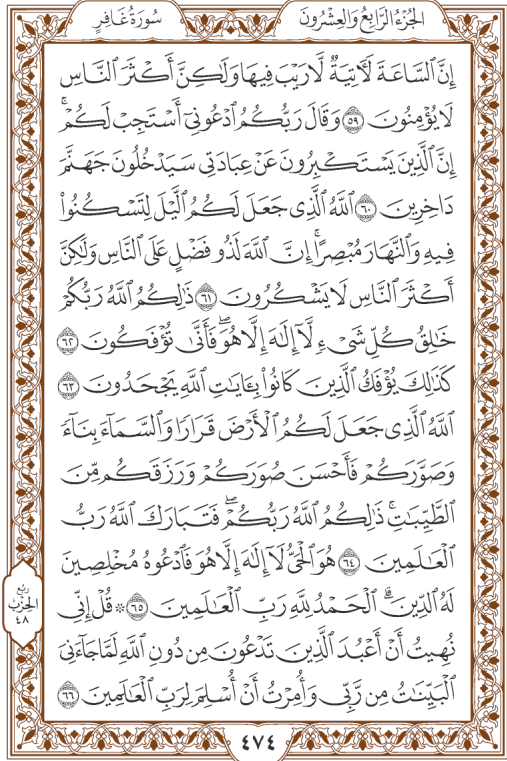 الجزء الرابع والعشرون
سورة غافر
إِنَّ ٱلسَّاعَةَ لَأٓتِيَةٌ لَّا رَيۡبَ فِيهَا وَلَٰكِنَّ أَكۡثَرَ ٱلنَّاسِ
لَا يُؤۡمِنُونَ ٥٩ وَقَالَ رَبُّكُمُ ٱدۡعُونِيٓ أَسۡتَجِبۡ لَكُمۡۚ
إِنَّ ٱلَّذِينَ يَسۡتَكۡبِرُونَ عَنۡ عِبَادَتِي سَيَدۡخُلُونَ جَهَنَّمَ
دَاخِرِينَ ٦٠ ٱللَّهُ ٱلَّذِي جَعَلَ لَكُمُ ٱلَّيۡلَ لِتَسۡكُنُواْ
فِيهِ وَٱلنَّهَارَ مُبۡصِرًاۚ إِنَّ ٱللَّهَ لَذُو فَضۡلٍ عَلَى ٱلنَّاسِ وَلَٰكِنَّ
أَكۡثَرَ ٱلنَّاسِ لَا يَشۡكُرُونَ ٦١ ذَٰلِكُمُ ٱللَّهُ رَبُّكُمۡ
خَٰلِقُ كُلِّ شَيۡءٖ لَّآ إِلَٰهَ إِلَّا هُوَۖ فَأَنَّىٰ تُؤۡفَكُونَ ٦٢
كَذَٰلِكَ يُؤۡفَكُ ٱلَّذِينَ كَانُواْ بِـَٔايَٰتِ ٱللَّهِ يَجۡحَدُونَ ٦٣
ٱللَّهُ ٱلَّذِي جَعَلَ لَكُمُ ٱلۡأَرۡضَ قَرَارٗا وَٱلسَّمَآءَ بِنَآءٗ
وَصَوَّرَكُمۡ فَأَحۡسَنَ صُوَرَكُمۡ وَرَزَقَكُم مِّنَ
ٱلطَّيِّبَٰتِۚ ذَٰلِكُمُ ٱللَّهُ رَبُّكُمۡۖ فَتَبَارَكَ ٱللَّهُ رَبُّ
ٱلۡعَٰلَمِينَ ٦٤ هُوَ ٱلۡحَيُّ لَآ إِلَٰهَ إِلَّا هُوَ فَٱدۡعُوهُ مُخۡلِصِينَ
لَهُ ٱلدِّينَۗ ٱلۡحَمۡدُ لِلَّهِ رَبِّ ٱلۡعَٰلَمِينَ ٦٥ ۞ قُلۡ إِنِّي
نُهِيتُ أَنۡ أَعۡبُدَ ٱلَّذِينَ تَدۡعُونَ مِن دُونِ ٱللَّهِ لَمَّا جَآءَنِيَ
ٱلۡبَيِّنَٰتُ مِن رَّبِّي وَأُمِرۡتُ أَنۡ أُسۡلِمَ لِرَبِّ ٱلۡعَٰلَمِينَ ٦٦
ربع
الحزب
٤٨
٤٧٤